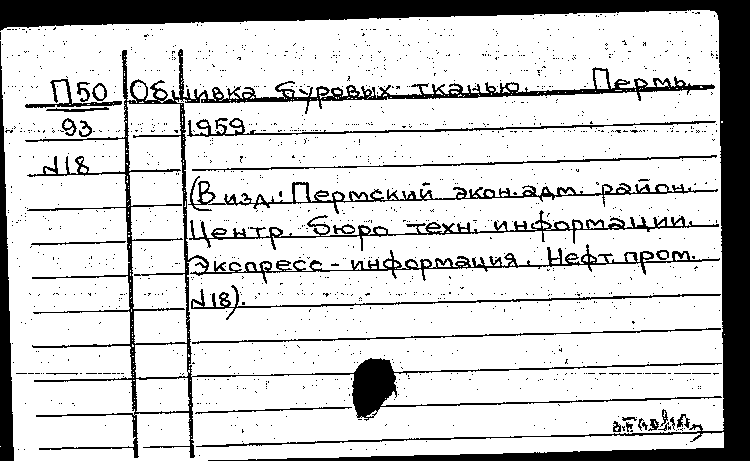 П50 Обшивка буровых тканью. Пермь,
93 1959.
N18
(В изд.: Пермский экон. адм. район.
Центр. бюро техн. информации.
Экспресс-информация. Нефт. пром.
N18).